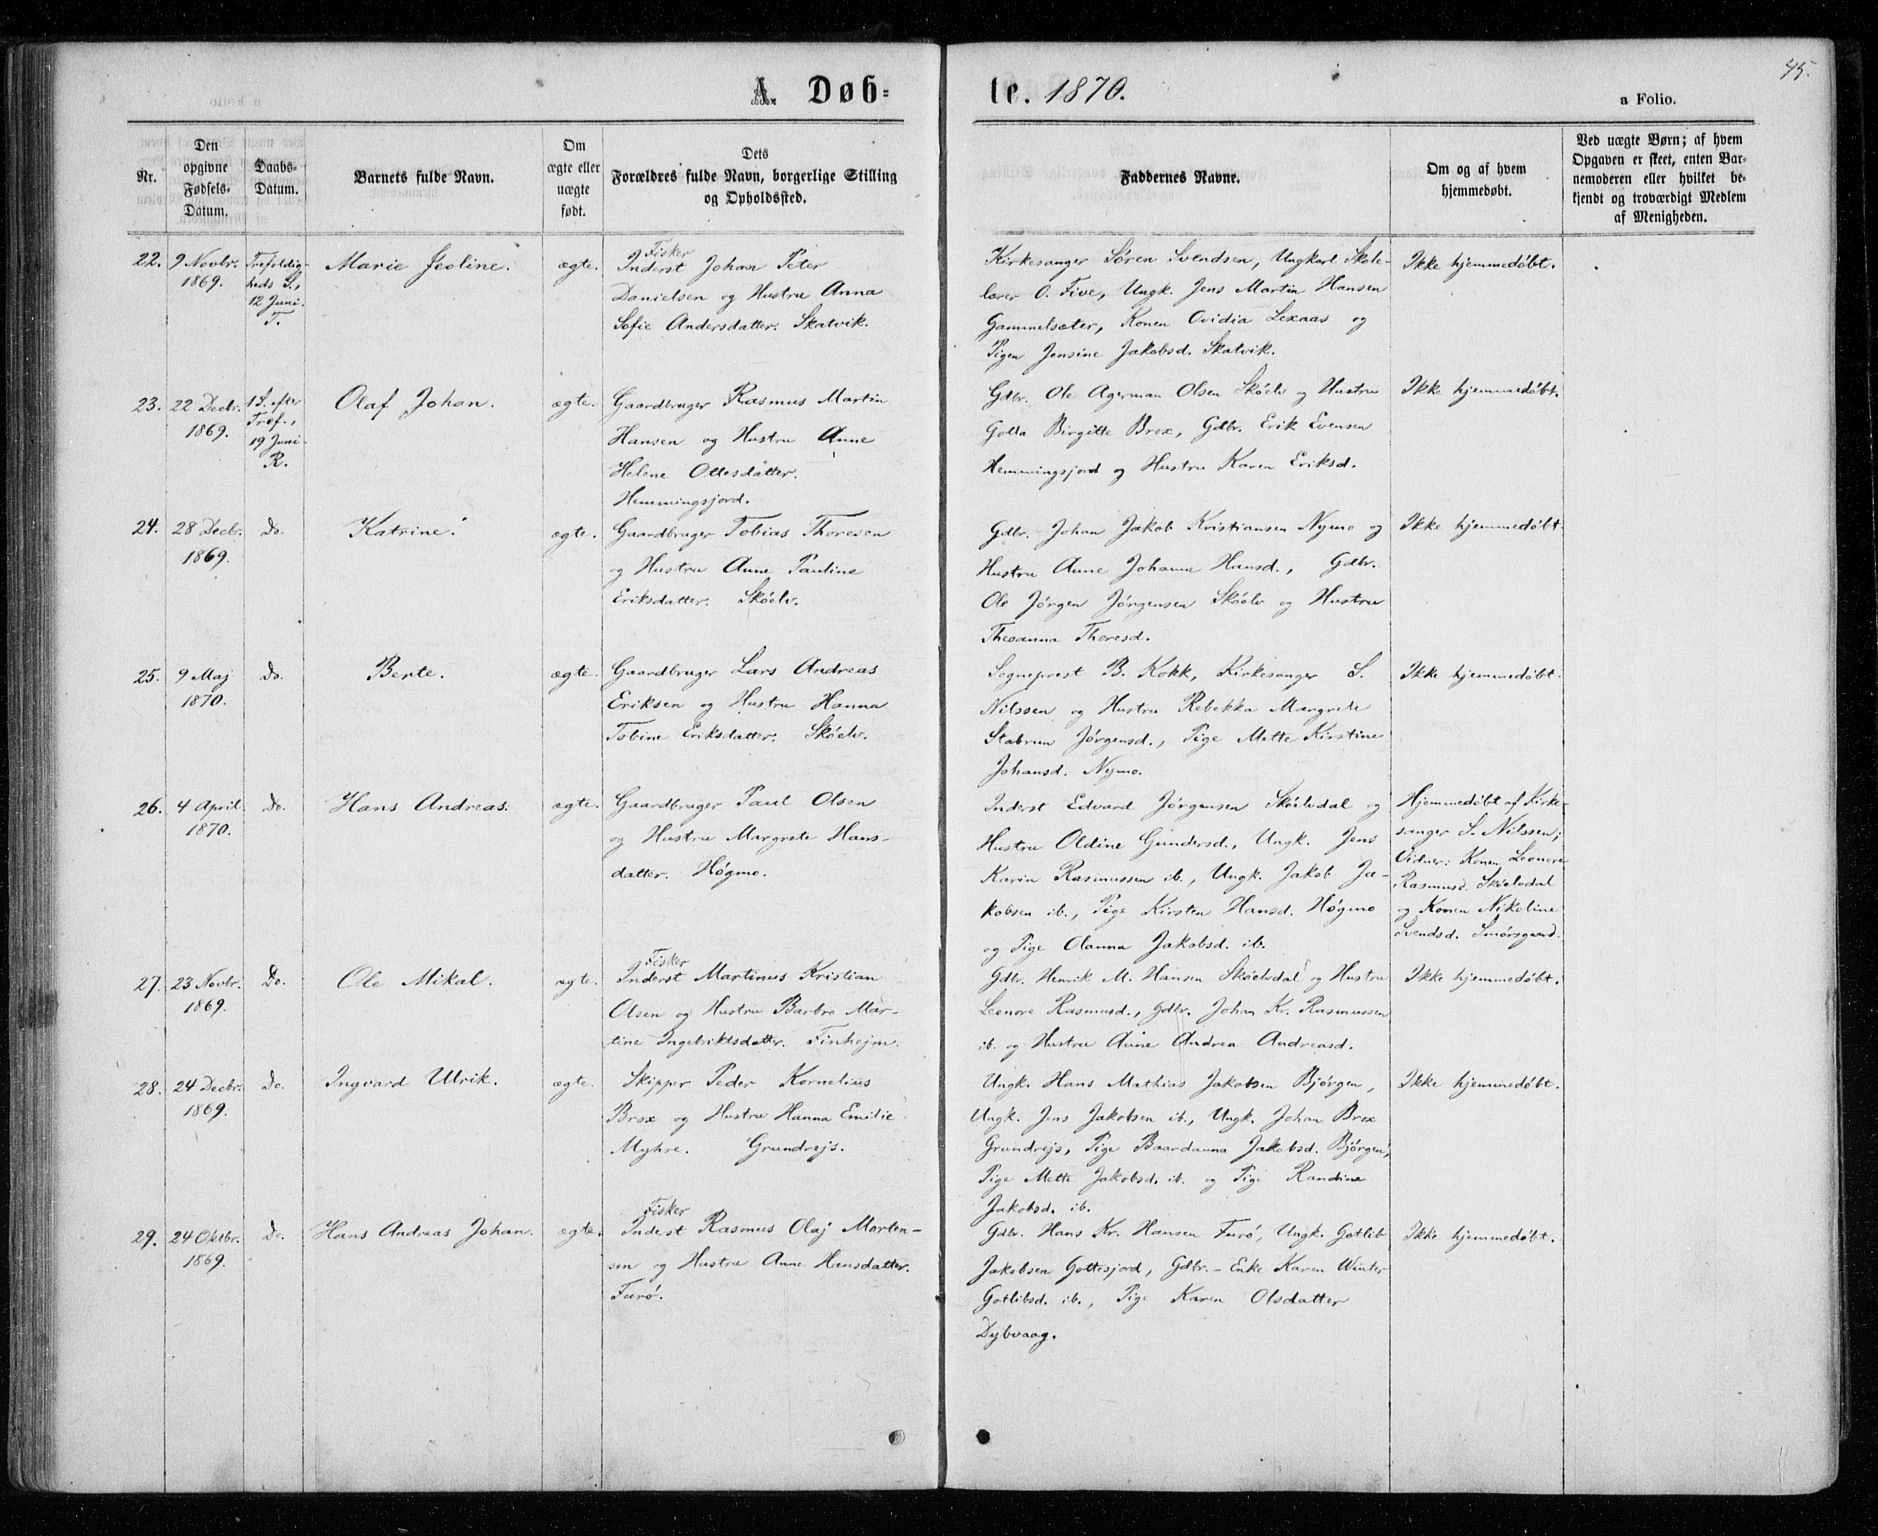 45.
A. Døb-
te. 1870.
a Folio.
Nr.
Den
opgivne
Fødsels-
Datum.
Daabs-
Datum.
Barnets fulde Navn.
Om
ægte eller
uægte
født.
Dets
Forældres fulde Navn, borgerlige Stilling
og Opholdssted.
Faddernes Navne.
Om og af hvem
hjemmedøbt.
Ved uægte Børn; af hvem
Opgaven er skeet, enten Bar-
nemoderen eller hvilket be-
kjendt og troværdigt Medlem
af Menigheden.
22.
9 Novbr.
1869.
Trefoldig-
heds S.,
12 Juni.
T.
Marie Jeoline.
ægte.
Fisker
Inderst Johan Peter
Danielsen og Hustru Anna
Sofie Andersdatter. Skatvik.
Kirkesanger Søren Svendsen, Ungkarl Skole-
lærer O. Five, Ungk. Jens Martin Hansen
Gammelsæter, Konen Ovidia Lexaas og
Pigen Jensine Jakobsd. Skatvik.
Ikke hjemmedøbt.
23.
22 Decbr.
1869.
1 S. efter
Tref.,
19 Juni.
R.
Olaf Johan.
ægte.
Gaardbruger Rasmus Martin
Hansen og Hustru Anne
Helene Ottesdatter.
Hemmingsjord.
Gdbr. Ole Agerman Olsen Sköelv og Hustru
Golla Birgitte Brox, Gdbr. Erik Evensen
Hemmingsjord og Hustru Karen Eriksd.
Ikke hjemmedøbt.
24.
28 Decbr.
1869.
Do.
Katrine.
ægte.
Gaardbruger Tobias Thoresen
og Hustru Anne Pauline
Eriksdatter. Sköelv.
Gdbr. Johan Jakob Kristiansen Nymo og
Hustru Anne Johanne Hansd., Gdbr.
Ole Jörgen Jörgensen Sköelv og Hustru
Theoanna Thoresd.
Ikke hjemmedøbt.
25.
9 Maj
1870.
Do.
Berte.
ægte.
Gaardbruger Lars Andreas
Eriksen og Hustru Hanna
Tobine Eriksdatter. Sköelv.
Sogneprest B. Kokk, Kirkesanger S.
Nilssen og Hustru Rebekka Margrete
Stabrun Jörgensd., Pige Mette Kirstine
Johansd. Nymo.
Ikke hjemmedøbt.
26.
4 April
1870.
Do.
Hans Andreas.
ægte.
Gaardbruger Paul Olsen
og Hustru Margrete Hans-
datter. Högmo.
Inderst Edvard Jörgensen Sköelvdal og
Hustru Oldine Gundersd., Ungk. Jens
Karin Rasmussen ib., Ungk. Jakob Ja-
kobsen ib., Pige Kirsten Hansd. Högmo
og Pige Olanna Jakobsd. ib.
Hjemmedöbt af Kirke-
sanger S. Nilssen;
Vidner: Konen Leonore
Rasmusd. Sköelvdal
og Konen Nikoline
Svendsd. Smörsgaard.
27.
23 Novbr.
1869.
Do.
Ole Mikal.
ægte.
Fisker
Inderst Martinus Kristian
Olsen og Hustru Barbro Mar-
tine Ingebriktsdatter. Finhejm.
Gdbr. Henrik M. Hansen Sköelvdal og Hustru
Leonore Rasmusd., Gdbr. Johan Kr. Rasmussen
ib. og Hustru Anne Andrea Andreasd.
Ikke hjemmedøbt.
28.
24 Decbr.
1869.
Do.
Ingvard Ulrik.
ægte.
Skipper Peder Kornelius
Brox og Hustru Hanna Emilie
Myhre. Grundrejs.
Ungk. Hans Mathias Jakobsen Bjórgen,
Ungk. Jens Jakobsen ib., Ungk. Johan Brox
Grundrejs, Pige Baardauna Jakobsd. Bjórgen,
Pige Mette Jakobsd. ib. og Pige Randine
Jakobsd. ib.
Ikke hjemmedøbt.
29.
24 Oktbr.
1869.
Do.
Hans Andreas Johan.
ægte.
Fisker
Inderst Rasmus Olaj Morten-
sen og Hustru Anne Hansdatter.
Furö.
Gdbr. Hans Kr. Hansen Furö, Ungk. Gotlib
Jakobsen Gottesjord, Gdbr.-Enke Karen Winter
Gotlibsd. ib., Pige Karen Olsdatter
Dybvaag.
Ikke hjemmedøbt.